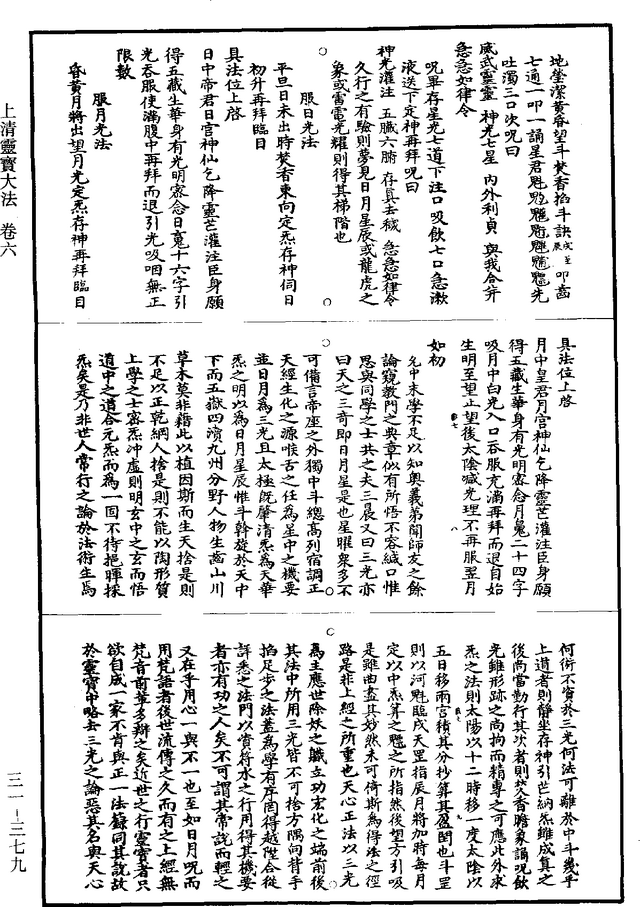 地瑩潔黃昏望斗焚香掐斗訣戌至辰叩齒
七通一叩一誦星君魁𩲃䰢魓𩵄䰢魒先
吐濁三口次呪曰
威武靈靈 神光七星 內外利貞 與我合并
急急如律令
呪畢存星光七道下注口吸飲七口急漱
液送下定神再拜呪曰
神光灌注 五臟六腑 存真去穢 急急如律令
久行之有驗則夢見日月星辰或龍虎之
象或雷電光耀則得其梯階也
服日光法
平旦日未出時焚香東向定炁存神伺日
初升再拜臨目
具法位上啓
日中帝君日宮神仙乞降靈芒灌注臣身願
得五藏生華身有光明密念日䰟十六字引
光吞服使滿腹中再拜而退引光吸咽無正
限數
服月光法
昏黃月將出望月光定炁存神再拜臨目
具法位上啓
月中皇君月宮神仙乞降靈芒灌注臣身願
得五藏生華身有光明密念月魄二十四字
吸月中白光入口吞服充滿再拜而退自始
生明至望止望後太陰減光理不再服翌月
如初
允中末學不足以知奥義第聞師友之餘
論窺教門之典章似有所悟不容緘口惟
思與同學之士共之夫三晨又曰三光亦
曰天之三奇即日月星是也星曜衆多不
可備言帝座之外獨中斗總高列宿調正
天經生化之源喉舌之任為星中之機要
並日月為三光且太極旣肇清炁為天華
炁之明以為日月星辰惟斗斡旋於天中
下而五嶽四瀆九州分野人物生齒山川
草木莫非藉此以植因斯而生天捨是則
不足以正乾綱人捨是則不能以陶形質
上學之士審炁沖虛則明玄中之玄而悟
道中之道合元炁而為一固不待挹暉採
炁矣是乃非世人常行之論於法術生焉
何術不資於三光何法可離於中斗幾乎
上道者則靜坐存神引芒納炁雖成真之
後尚當勤行其次者則焚香瞻象誦呪飲
光雖形跡之尚拘而精專之可應此外求
炁之法則太陽以十二時移一度太陰以
五日移兩宮積其分抄算其盈閏也斗罡
則以河魁臨戌天罡指辰月將加時每月
定以中炁算之魒之所指然後望方引吸
是雖曲盡其妙然未可倚斯為得法之徑
路是非上經之所重也天心正法以三光
為主應世除妖之職立功宏化之端前後
其法中所用三光皆不可捨方隅向背手
掐足步之法蓋為學有序罔得越陞合從
詳悉之法門以資將水之行用得其機要
者亦有功之人矣不可謂其常說而輕之
又在乎用心一與不一也至如日月呪而
用梵語者後世流傳之久而有之上經無
梵音前輩多辯之矣近世之行靈寶者只
欲自成一家不肯與正一法籙同其說故
於靈寶中略去三光之論惡其名與天心
上清靈寶大法 卷六
三一－三七九